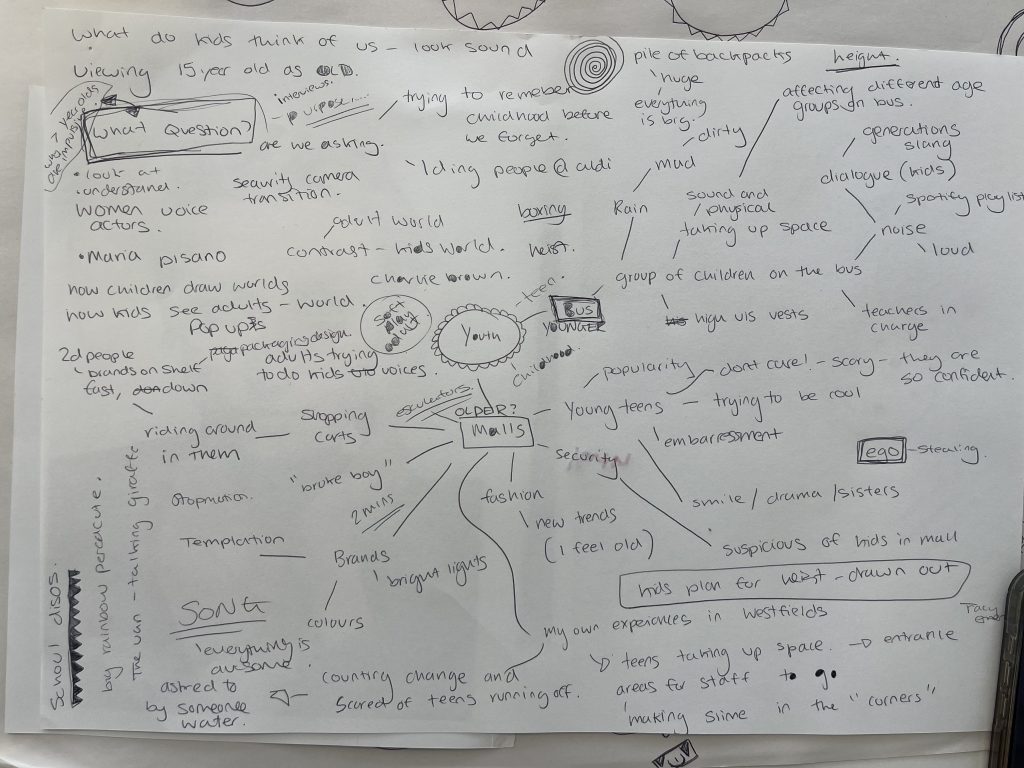 what do kids think of us - look sound
viewing 15 year old as OLD.
why 7 year olds
are
What Question?
interviews.
purpose....
are we asking.
• look at
• understand.
security camera
transition.
trying to remeber
childhood before
we forget.
people @ audi
women voice
actors.
• Maria pisano
adult world
contrast - kids world.
charlie brown.
boxing
heist.
how children draw worlds
how kids see adults - world.
Pop ups
soft
play
adult
packaging design.
2d people
brands on shelf
fast, down
adults trying
to do kids voices.
Youth
teen.
Childhood.
Bus
YOUNGER
pile of backpacks
huge
everything
is big.
dirty
mud
Rain
height.
affecting different age
groups on bus.
generations
slang
dialogue (kids)
spotify playlist
noise
loud
sound and
physical
taking up space
group of children on the bus
high vis vests
teachers in
charge
esculators
OLDER?
Malls
Shopping
carts
riding around
in them
"broke boy"
2 mins
Stopmotion.
Temptation
Brands
bright lights
colours
SONG
everything is
awsome.
country change and
scared of teens running off.
asked to
by someone
water.
fashion
new trends
(I feel old)
Young teens
popularity
dont care! - scary - they are
so confident.
trying to be cool
embarressment
smile / drama / sisters
ego - stealing.
security
suspicious of kids in mall
kids plan for heist - drawn out
my own experiences in westfields
teens taking up space. → entrance
areas for staff to go
making slime in the "corners"
school disos.
big rainbow peracute.
The van - talking giraffe